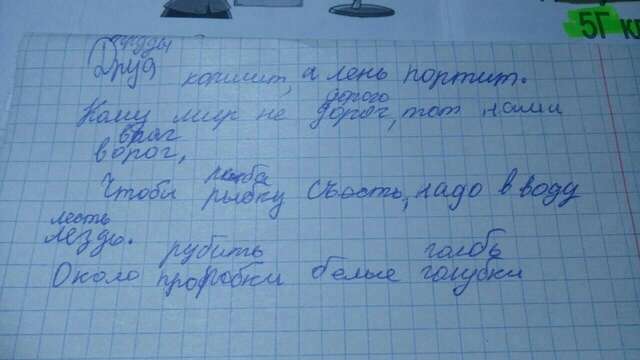 5Г кл
труды
Друд кормит, а лень портит.
дорого
Кому мир не дорог, тот нами
враг
ворог,
рыба
Чтобы рыбку съесть, надо в воду
лесть
лездь.
рубить голобь
Около профобки белые голубки